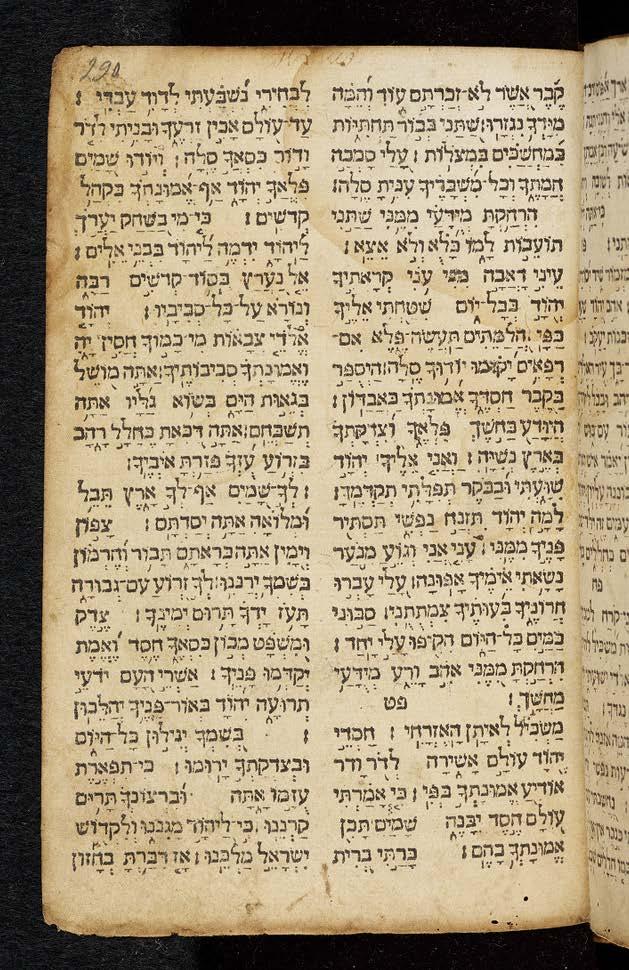 290
קבר אשר לא־זכרתם עוד והמה
מידך נגזרו׃שתני בבור תחתיות
במחשכים במצלות׃ עלי סמכה
חמתך וכל־משבריך ענית סלה׃
הרחקת מידעי ממני שתני
תועבות למו כלא ולא אצא׃
עיני דאבה מני עני קראתיך
יהוד בכל־יום שטחתי אליך
כפי׃הלמתים תעשה־פלא אם־
רפאים יקומו יודוך סלה׃היספר
בקבר חסדך אמונתך באבדון׃
היודע בחשך פלאך וצדקתך
בארץ נשיה׃ ואני אליך יהוד
שועתי ובבקר תפלתי תקדמך׃
למה יהוד תזנח נפשי תסתיר
פניך ממני׃ עני אני וגוע מנער
נשאתי אימיך אפונה׃ עלי עברו
חרוניך בעותיך צמתתני׃ סבוני
כמים כל־היום הקיפו עלי יחד׃
הרחקת ממני אהב ורע מידעי
מחשך׃ פט
משכיל לאיתן האזרחי׃ חסדי
יהוד עולם אשירה לדר ודר
אודיע אמונתך בפי׃ כי אמרתי
עולם חסד יבנה שמים תכן
אמונתך בהם׃ כרתי ברית
לבחירי נשבעתי לדוד עבדי׃
עד־עולם אכין זרעך ובניתי לדר
ודור כסאך סלה׃ ויודו שמים
פלאך יהוד אף־אמונתך בקהל
קדשים׃ כי־מי בשחק יערך
ליהוד ידמה ליהוד בבני אלים׃
אל נערץ בסוד־קדשים רבה
ונורא על־כל־סביביו׃ יהוד
אלדי צבאות מי־כמוך חסין יה
ואמונתך סביבותיך׃אתה מושל
בגאות הים בשוא גליו אתה
תשבחם׃אתה דכאת כחלל רהב
בזרוע עזך פזרת איביך׃
לך־שמים אף־לך ארץ תבל
ומלואה אתה יסדתם׃ צפון
וימין אתה בראתם תבור וחרמון
בשמך ירננו׃לך זרוע עם־גבורה
תעז ידך תרום ימינך׃ צדק
ומשפט מכון כסאך חסד ואמת
יקדמו פניך׃ אשרי העם ידעי
תרועה יהוד באור־פניך יהלכון
׃ בשמך יגילון כל־היום
ובצדקתך ירומו׃ כי־תפארת
עזמו אתה וברצונך תרים
קרננו׃כי־ליהוד מגננו ולקדוש
ישראל מלכנו׃ אז דברת בחזון